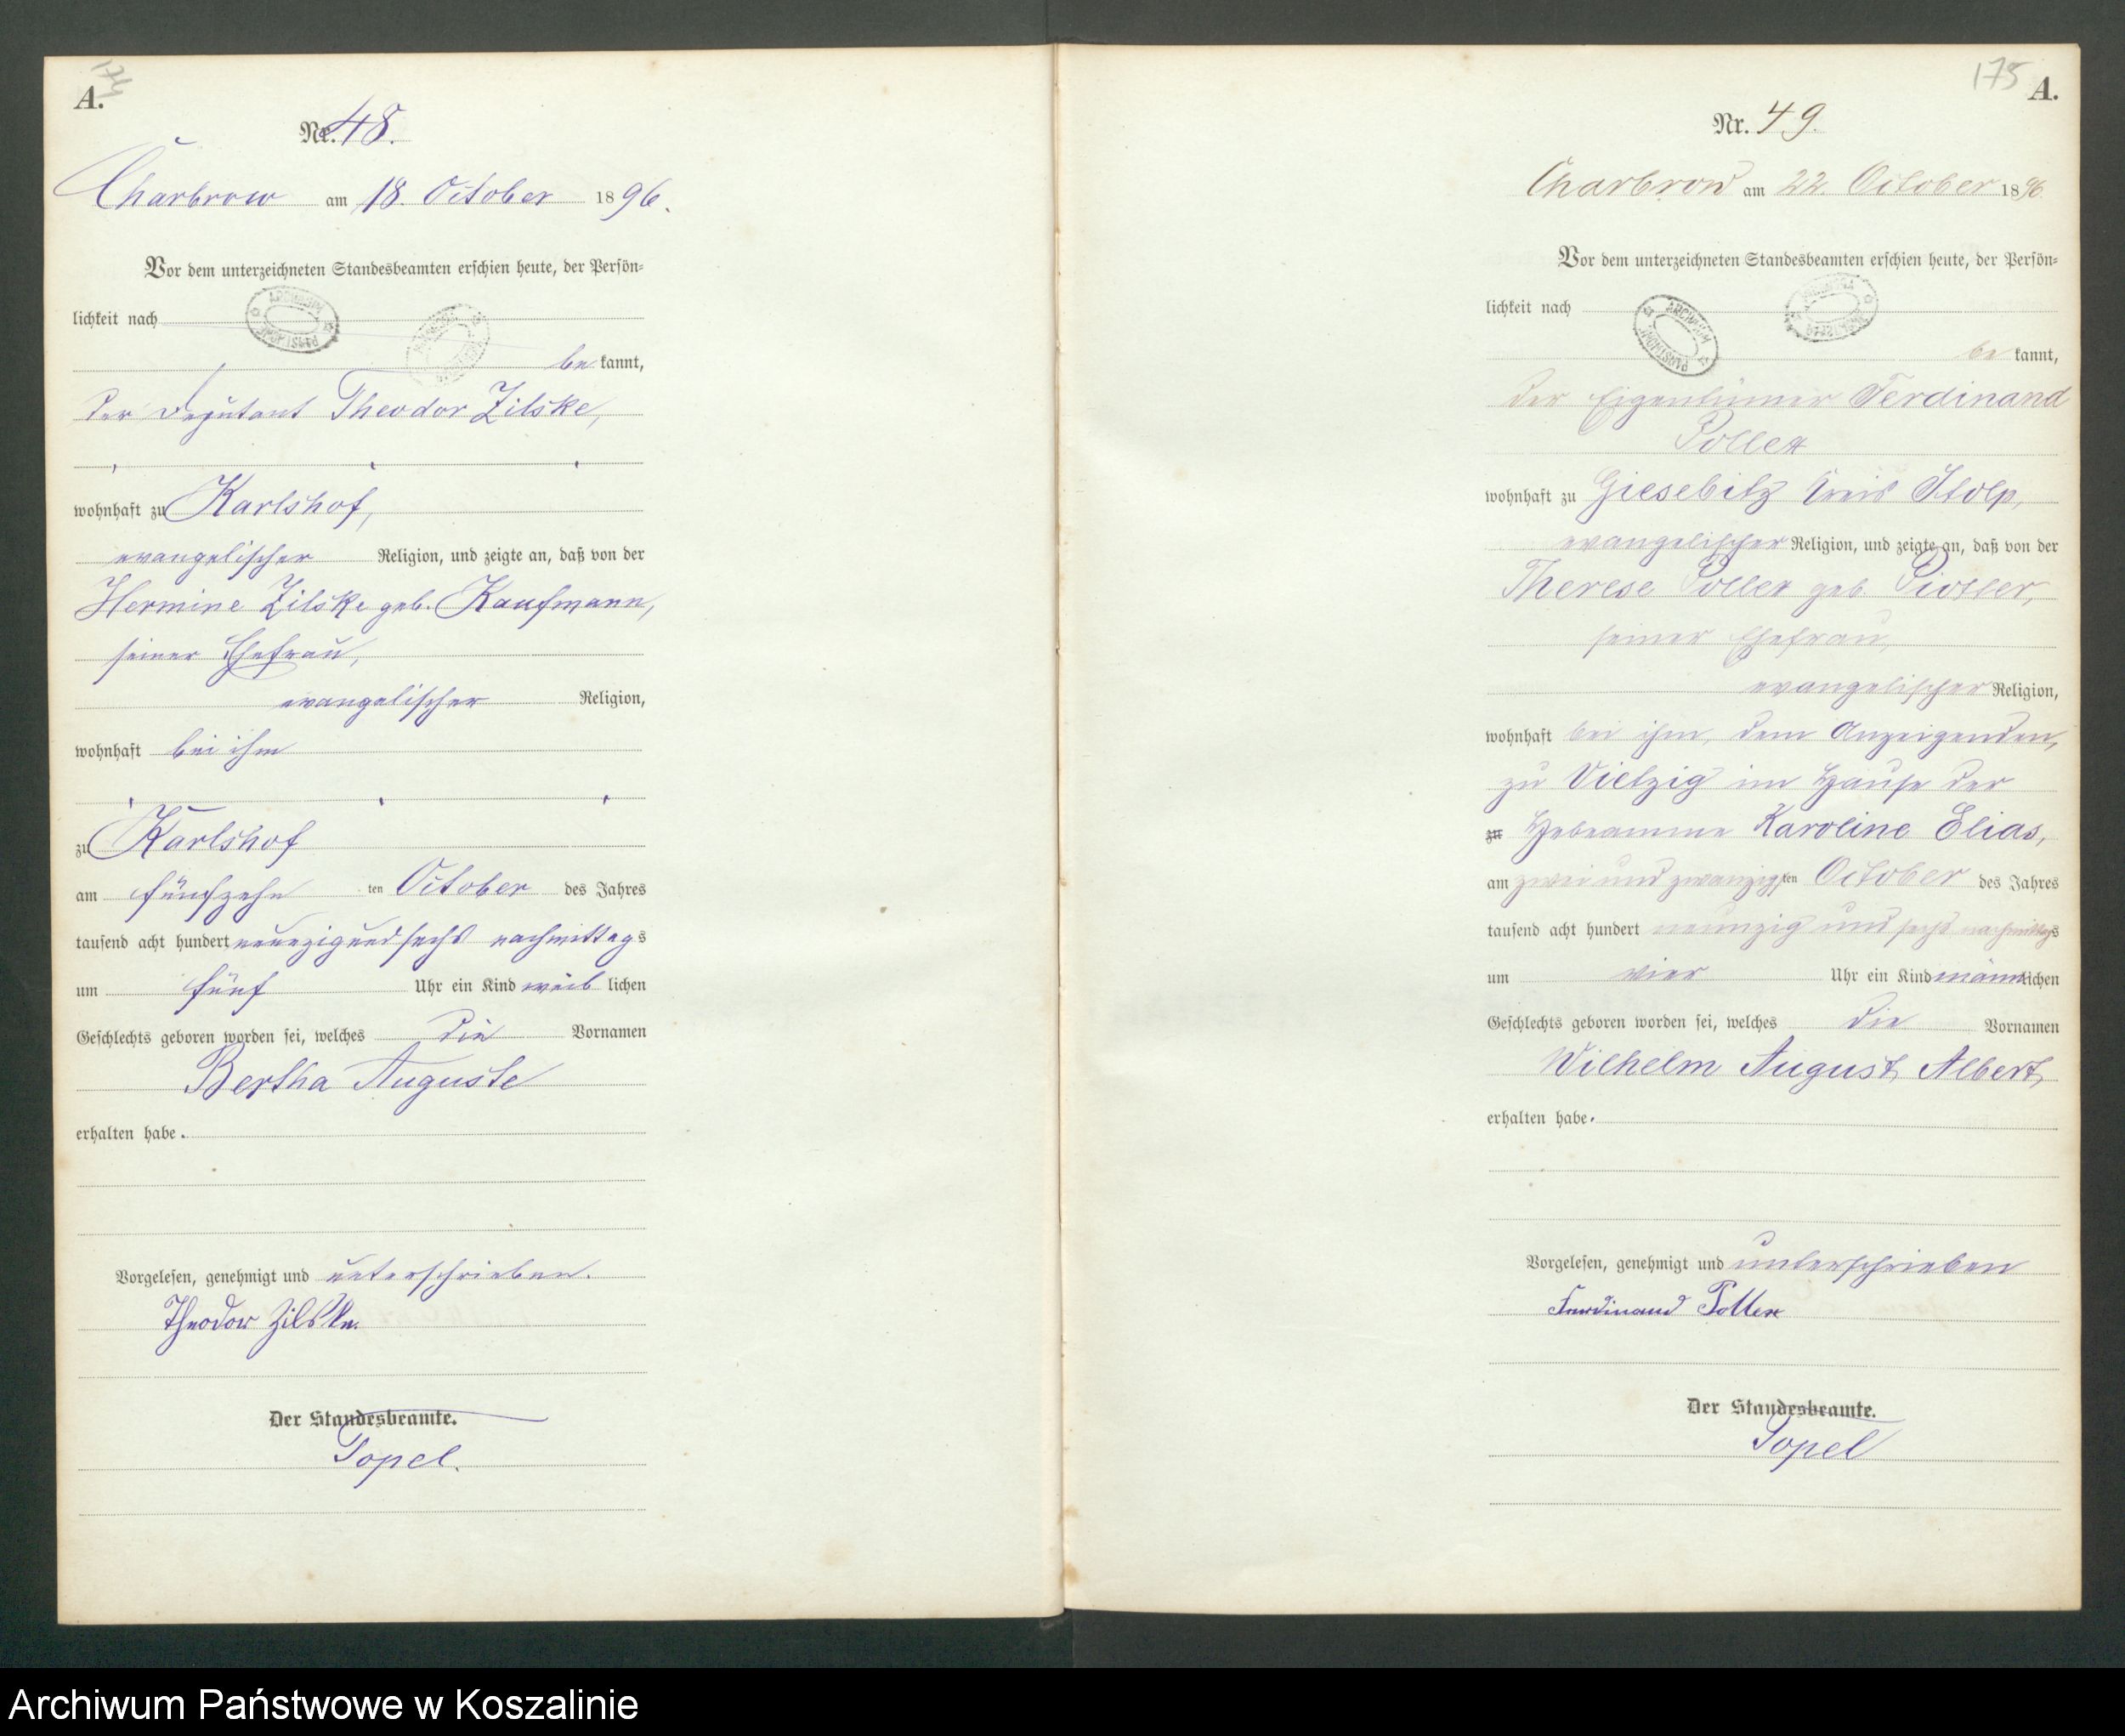 174
A.
Nr. 48.
Charbrow am 18. October 1896.
Vor dem unterzeichneten Standesbeamten erschien heute, der Persön-
lichkeit nach
be kannt,
der Deputant Theodor Zilske,
wohnhaft zu Karlshof,
evangelischer Religion, und zeigte an, daß von der
Hermine Zilske geb. Kaufmann,
seiner Ehefrau,
evangelischer Religion,
wohnhaft bei ihm
zu Karlshof
am fünfzehn ten October des Jahres
tausend acht hundert neunzig und sechs nachmittags
um fünf Uhr ein Kind weib lichen
Geschlechts geboren worden sei, welches die Vornamen
Bertha Auguste
erhalten habe.
Vorgelesen, genehmigt und unterschrieben.
Theodor Zilske.
Der Standesbeamte.
Topel.
175
A.
Nr. 49.
Charbrow am 22. October 1896
Vor dem unterzeichneten Standesbeamten erschien heute, der Persön-
lichkeit nach
be kannt,
der Eigentümer Ferdinand
Pollex
wohnhaft zu Giesebitz Kreis Stolp,
evangelischer Religion, und zeigte an, daß von der
Therese Pollex geb.
seiner Ehefrau,
evangelischer Religion,
wohnhaft bei ihm, dem Anzeigenden,
zu Vietzig im Hause der
zu Hebeamme Karoline Elias,
am zwei und zwanzigsten October des Jahres
tausend acht hundert neunzig und sechs nachmittags
um vier Uhr ein Kind männlichen
Geschlechts geboren worden sei, welches die Vornamen
Wilhelm August Albert
erhalten habe.
Vorgelesen, genehmigt und unterschrieben
Ferdinand Pollex
Der Standesbeamte.
Topel
Archiwum Państwowe w Koszalinie